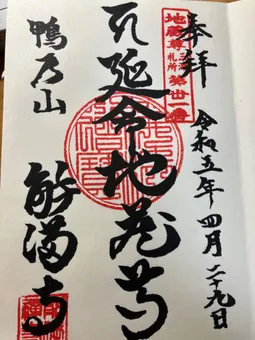 奉拝
令和五年四月二十九日
地蔵尊
札所
延命地蔵尊
鴨乃山
能満寺